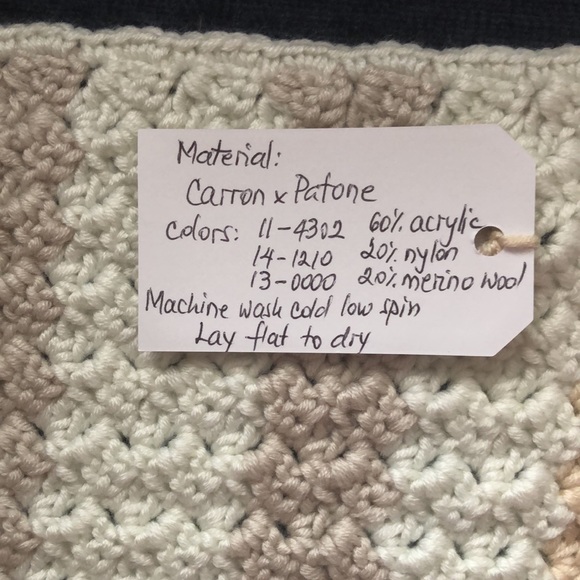 Material:
Carron x Patone
Colors: 11-4302 60% acrylic
14-1210 20% nylon
13-0000 20% merino wool
Machine wash cold low spin
Lay flat to dry